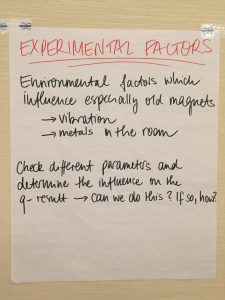 EXPERIMENTAL FACTORS
Environmental factors which
influence especially old magnets
→ vibration
→ metals in the room
Check different parameters and
determine the influence on the
q-result → can we do this? If so, how?